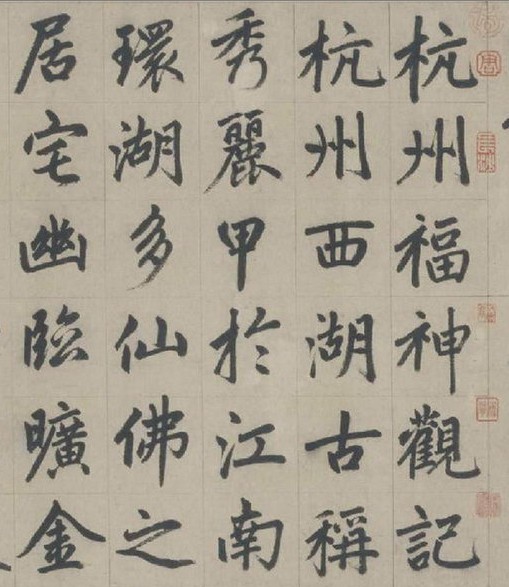 杭州福神觀記
杭州西湖古稱
秀麗甲於江南
環湖多仙佛之
居宅幽臨曠金